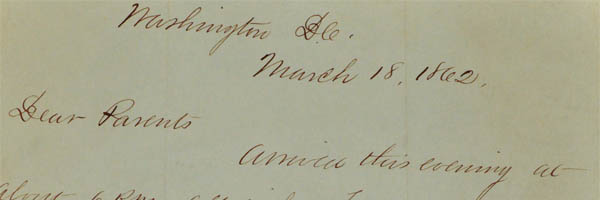 Washington D.C.
March 18, 1862.
Dear Parents
Arrived this evening at
about 6 P.M.